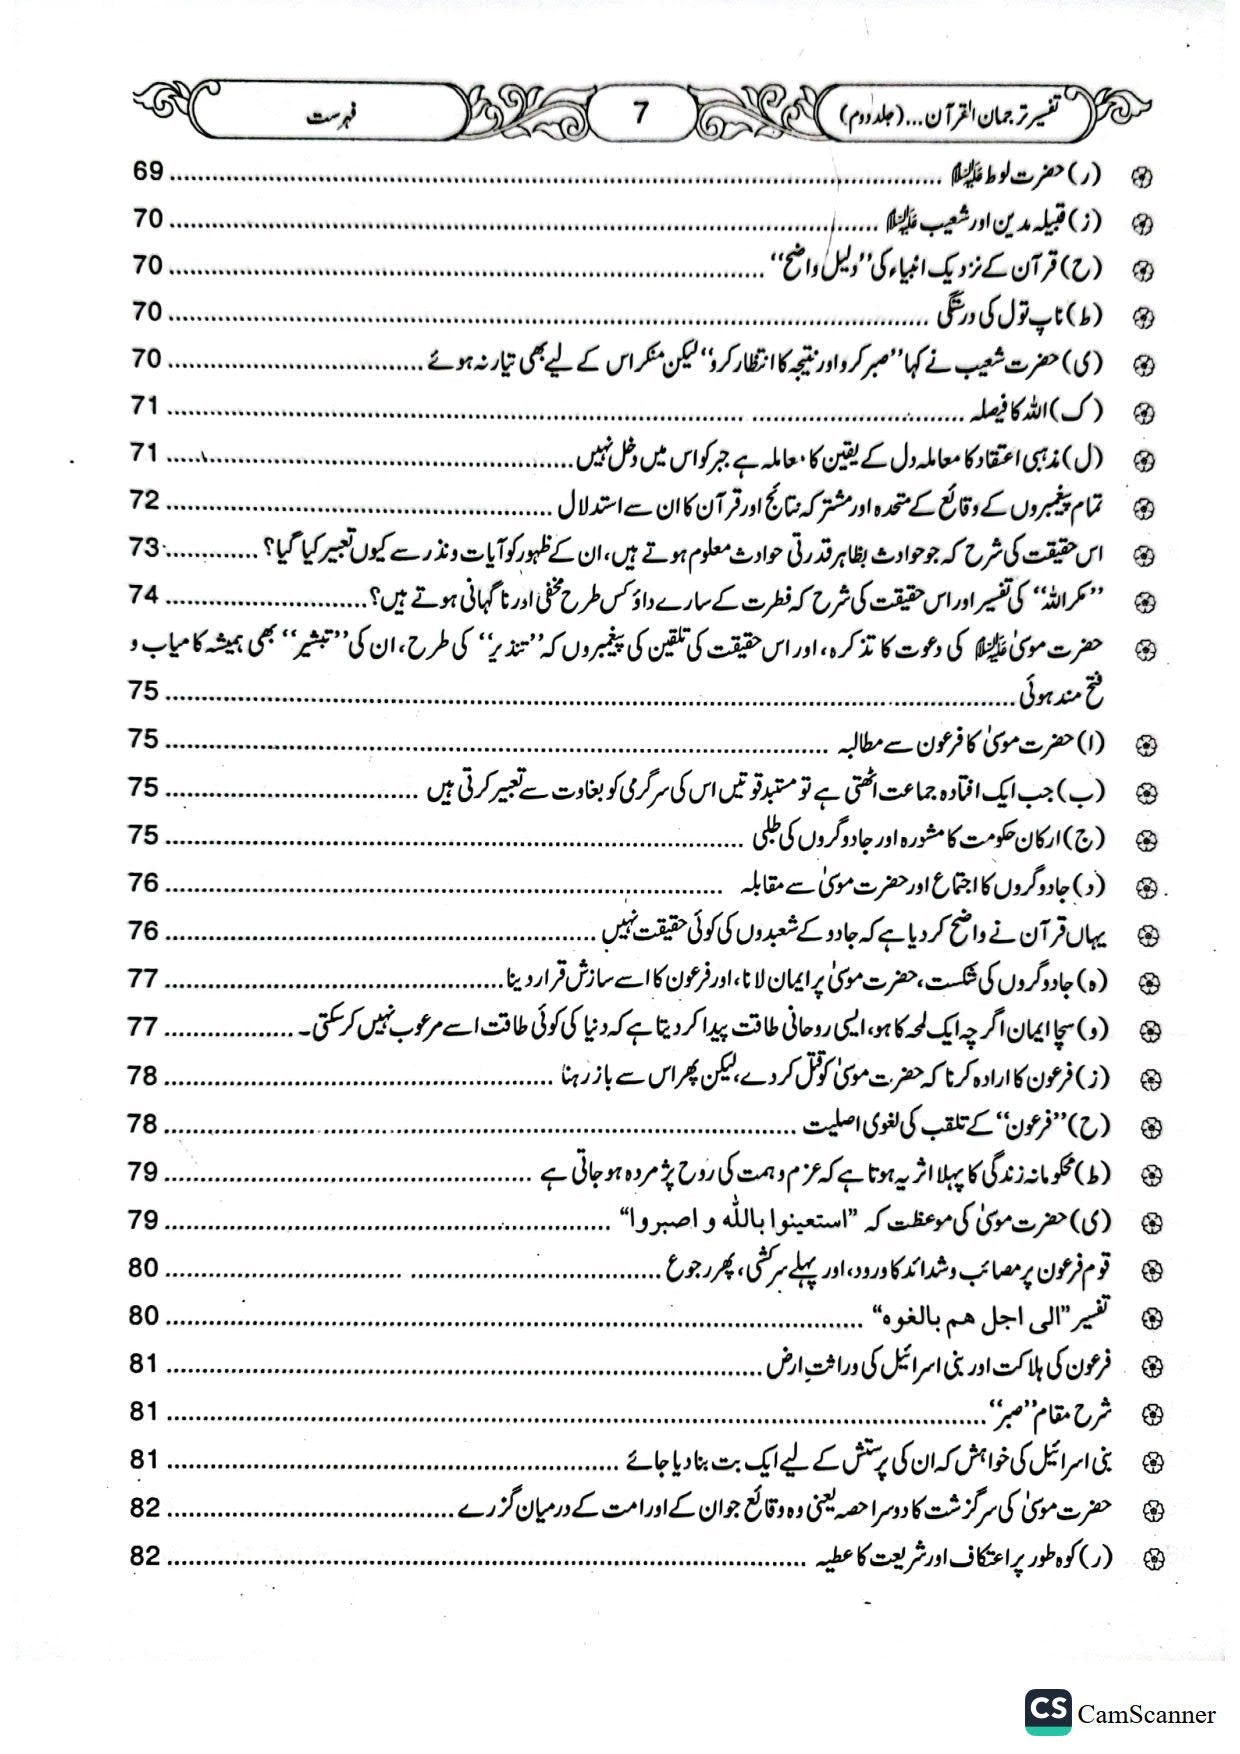 تفسیر ترجمان القرآن...(جلد دوم) 7 فہرست
(ر) حضرت لوط علیہ السلام ........ 69
(ز) قبیلہ مدین اور شعیب علیہ السلام ........ 70
(ح) قرآن کے نزدیک انبیاء کی ’’دلیل واضح‘‘ ........ 70
(ط) ناپ تول کی درستگی ........ 70
(ی) حضرت شعیب نے کہا ’’صبر کرو اور نتیجہ کا انتظار کرو‘‘ لیکن منکر اس کے لیے بھی تیار نہ ہوئے ........ 70
(ک) اللہ کا فیصلہ ........ 71
(ل) مذہبی اعتقاد کا معاملہ دل کے یقین کا معاملہ ہے جبر کو اس میں دخل نہیں ........ 71
تمام پیغمبروں کے وقائع کے متحدہ اور مشترکہ نتائج اور قرآن کا ان سے استدلال ........ 72
اس حقیقت کی شرح کہ جو حوادث بظاہر قدرتی حوادث معلوم ہوتے ہیں، ان کے ظہور کو آیات و نذر سے کیوں تعبیر کیا گیا؟ ........ 73
’’مکر اللہ‘‘ کی تفسیر اور اس حقیقت کی شرح کہ فطرت کے سارے داؤ کس طرح مخفی اور ناگہانی ہوتے ہیں؟ ........ 74
حضرت موسیٰ علیہ السلام کی دعوت کا تذکرہ، اور اس حقیقت کی تلقین کی پیغمبروں کہ ’’تنذیر‘‘ کی طرح، ان کی ’’تبشیر‘‘ بھی ہمیشہ کامیاب و
فتح مند ہوئی ........ 75
(ا) حضرت موسیٰ کا فرعون سے مطالبہ ........ 75
(ب) جب ایک افتادہ جماعت اٹھتی ہے تو مستبد قوتیں اس کی سرگرمی کو بغاوت سے تعبیر کرتی ہیں ........ 75
(ج) ارکان حکومت کا مشورہ اور جادوگروں کی طلبی ........ 75
(د) جادوگروں کا اجتماع اور حضرت موسیٰ سے مقابلہ ........ 76
یہاں قرآن نے واضح کر دیا ہے کہ جادو کے شعبدوں کی کوئی حقیقت نہیں ........ 76
(ہ) جادوگروں کی شکست، حضرت موسیٰ پر ایمان لانا، اور فرعون کا اسے سازش قرار دینا ........ 77
(و) سچا ایمان اگرچہ ایک لمحہ کا ہو، ایسی روحانی طاقت پیدا کر دیتا ہے کہ دنیا کی کوئی طاقت اسے مرعوب نہیں کر سکتی۔ ........ 77
(ز) فرعون کا ارادہ کرنا کہ حضرت موسیٰ کو قتل کر دے، لیکن پھر اس سے باز رہنا ........ 78
(ح) ’’فرعون‘‘ کے تلقب کی لغوی اصلیت ........ 78
(ط) محکومانہ زندگی کا پہلا اثر یہ ہوتا ہے کہ عزم و ہمت کی روح پژمردہ ہو جاتی ہے ........ 79
(ی) حضرت موسیٰ کی موعظت کہ ”استعینوا باللہ و اصبروا“ ........ 79
قوم فرعون پر مصائب و شدائد کا ورود، اور پہلے سرکشی، پھر رجوع ........ 80
تفسیر ”الی اجل ھم بالغوہ“ ........ 80
فرعون کی ہلاکت اور بنی اسرائیل کی وراثتِ ارض ........ 81
شرح مقام ’’صبر‘‘ ........ 81
بنی اسرائیل کی خواہش کہ ان کی پرستش کے لیے ایک بت بنا دیا جائے ........ 81
حضرت موسیٰ کی سرگزشت کا دوسرا حصہ یعنی وہ وقائع جو ان کے اور امت کے درمیان گزرے ........ 82
(ر) کوہ طور پر اعتکاف اور شریعت کا عطیہ ........ 82
CS CamScanner